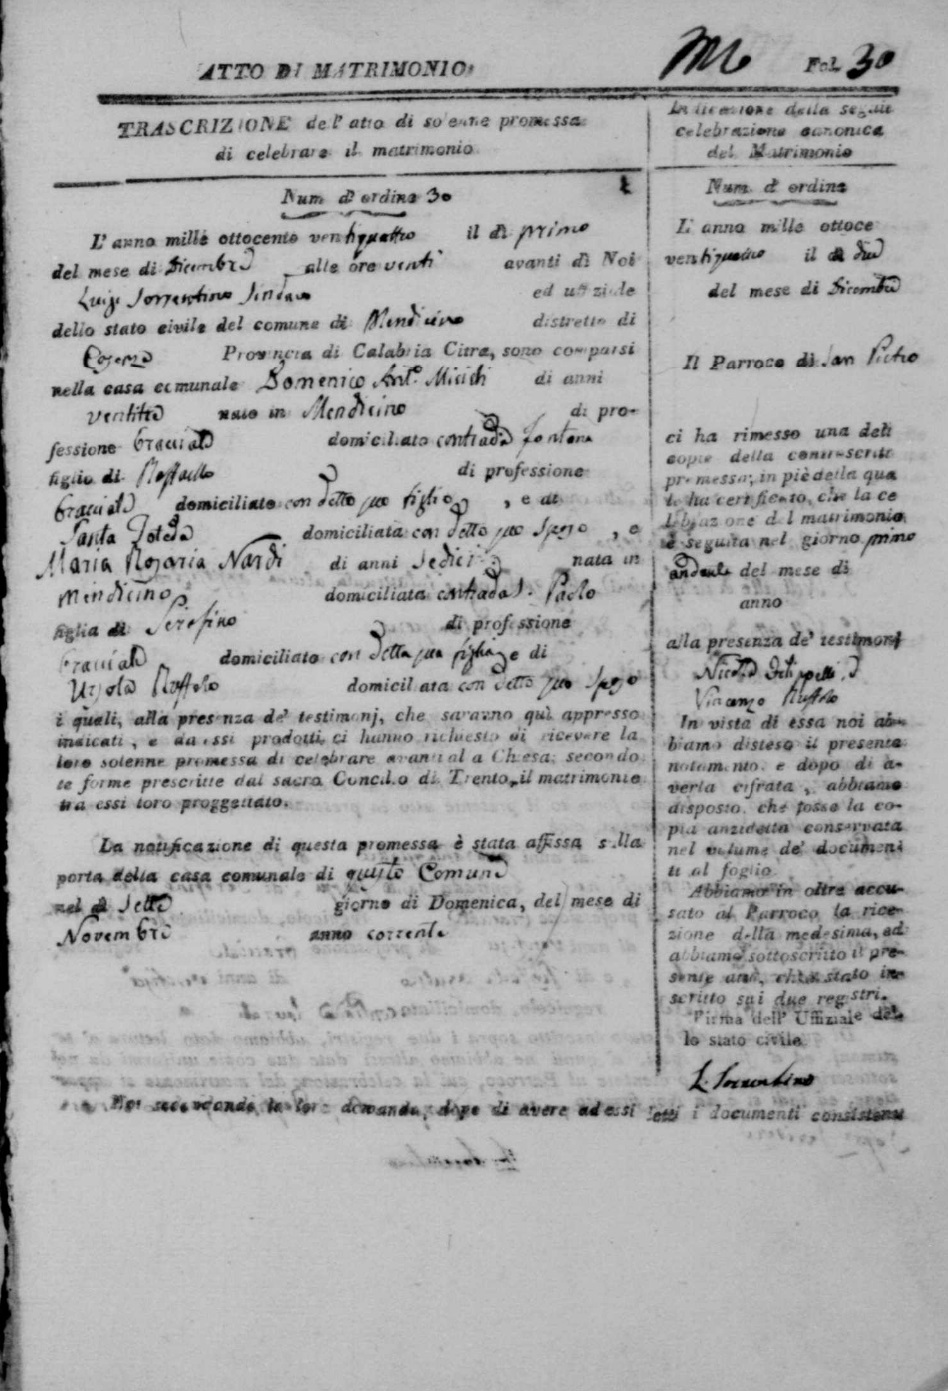 ATTO DI MATRIMONIO.
Fol. 30
TRASCRIZIONE del' atto di solenne promessa
di celebrare il matrimonio
Num. d' ordine 30
L' anno mille ottocento ventiquattro il dì primo
del mese di Dicembre alle ore venti avanti di Noi
Luigi Sorrentino Sindaco ed uffiziale
dello stato civile del comune di Mendicino distretto di
Cosenza Provincia di Calabria Citra, sono comparsi
nella casa comunale Domenico Ant.º di anni
ventitre nato in Mendicino di pro-
fessione bracciale domiciliato contrada fontana
figlio di Raffaele di professione
bracciale domiciliato con detto suo figlio, e di
Santa Potede domiciliata con detto suo sposo, e
Maria Rosaria Nardi di anni sedici nata in
Mendicino domiciliata contrada S. Paolo
figlia di Serafino di professione
bracciale domiciliato con detta sua figlia e di
Ursola Ruffolo domiciliata con detto suo sposo
i quali, alla presenza de' testimonj, che saranno quì appresso
indicati, e da essi prodotti, ci hanno richiesto di ricevere la
loro solenne promessa di celebrare avanti al a Chiesa, secondo
le forme prescritte dal sacro Concilio di Trento, il matrimonio
tra essi loro proggettato.
La notificazione di questa promessa è stata affissa sulla
porta della casa comunale di questo Comune
nel dì sette giorno di Domenica, del mese di
Novembre anno corrente
Indicazione della seguit
celebrazione canonica
del Matrimonio
Num. d' ordine
L' anno mille ottoce
ventiquattro il dì due
del mese di Dicembre
Il Parroco di San Pietro
ci ha rimesso una deli
copie della controscritt
promessa; in piè della qua
le ha certificato, che la ce
lebrazione del matrimonio
è seguita nel giorno primo
andante del mese di
anno
alla presenza de' testimonj
Vincenzo Ruffolo
In vista di essa noi ab-
biamo disteso il presente
notamento, e dopo di a-
verla cifrata, abbiamo
disposto, che fosse la co-
pia anzidetta conservata
nel volume de' document
ti al foglio
Abbiamo in oltre accu-
sato al Parroco la rice-
zione della medesima, ed
abbiamo sottoscritto il pre-
sente atto, ch'è stato in-
scritto sui due registri.
Firma dell' Uffiziale del
lo stato civile.
L. Sorrentino
Noi secondando la loro domanda, dopo di avere ad essi letti i documenti consistenti